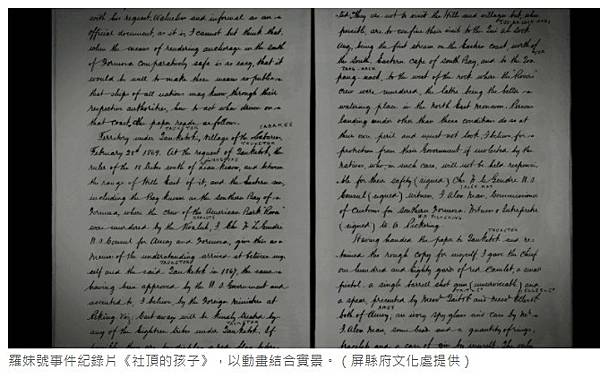 with his request. Valueless and informal as an
official document, as it is, I cannot but think that
when the means of rendering anchorage in the south
of Formosa comparatively safe is so easy, that it
would be well to make these means so public
that ships of all nations may know, through their
respective authorities, how to act when driven on
that Coast, the paper reads, as follows.
TAUKETOK SABAREE
Territory under Tauketok, Village of the Sabaree
TAUKETOK
February 28th 1869. At the request of Tauketok, the
ruler of the 18 tribes south of and between
the range of Hills East of it, and the Eastern sea,
including the Bay known as the southern Bay of
Formosa, where the crew of the American Bark Rover
KOALUTS
were murdered by the Koaluts, I Le Gendre
U.S. Consul for Amoy and Formosa, give this as a
memo of the understanding arrived at between my
TAUKETOK
self and the said Tauketok in 1867, the same
having been approved by the U.S Government and
assented to, I believe by the Foreign Ministers at
Peking viz: Cast away will be kindly treated by
TAUKETOK
any of the eighteen tribes under Tauketok. If
they are not to visit the Hills and villages but, when
possible, are to confine their visit to the
being the first stream on the Eastern coast, north of
the South, Eastern cape of South Bay, and to the Toa
pang-nack, to the west of the rock where the Rover's
crew were murdered, the latter being the better
watering place in the North East monsoon. Persons
landing under other than these conditions do so at
their own peril and must not look, I believe, for
protection from their Government if molested by the
natives, who in such case, will not be held responsi
ble for their safety (signed) Le Gendre U.S.
ALEX MAN
Consul (signed) witness, I Alex Man, Commissioner
of Customs for southern Formosa. Witness & Interpreter
W A PICKERING
(signed) W. A. Pickering
TAUKETOK
Having handed the paper to Tauketok and re
tained the rough copy for myself, I gave the Chief
one hundred and eighty yards of red Camlet, a small
pistol, a single barrel shot gun (unserviceable) and
a spear, presented by Messrs and Messrs
AMOY
both of Amoy, an ivory spy glass and case by Mr.
Alex Man, some beads and a quantity of rings,
羅妹號事件紀錄片《社頂的孩子》，以動畫結合實景。（屏縣府文化處提供）